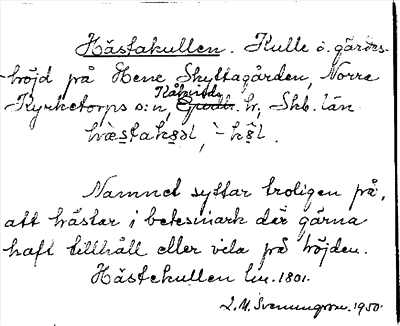 Hästakullen. Kulle o. gärdes-
höjd på Hene Skattegården, Norra
Kåkinds
Kyrketorps s:n, Gudh. hd, Skb. län
hæ̀stakɷ̀l, -kɷ̀l.
Namnet syftar troligen på,
att hästar i betesmark där gärna
haft tillhåll eller vila på höjden.
Hästekullen Lm. 1801.
L. M. Svenungsson. 1950.